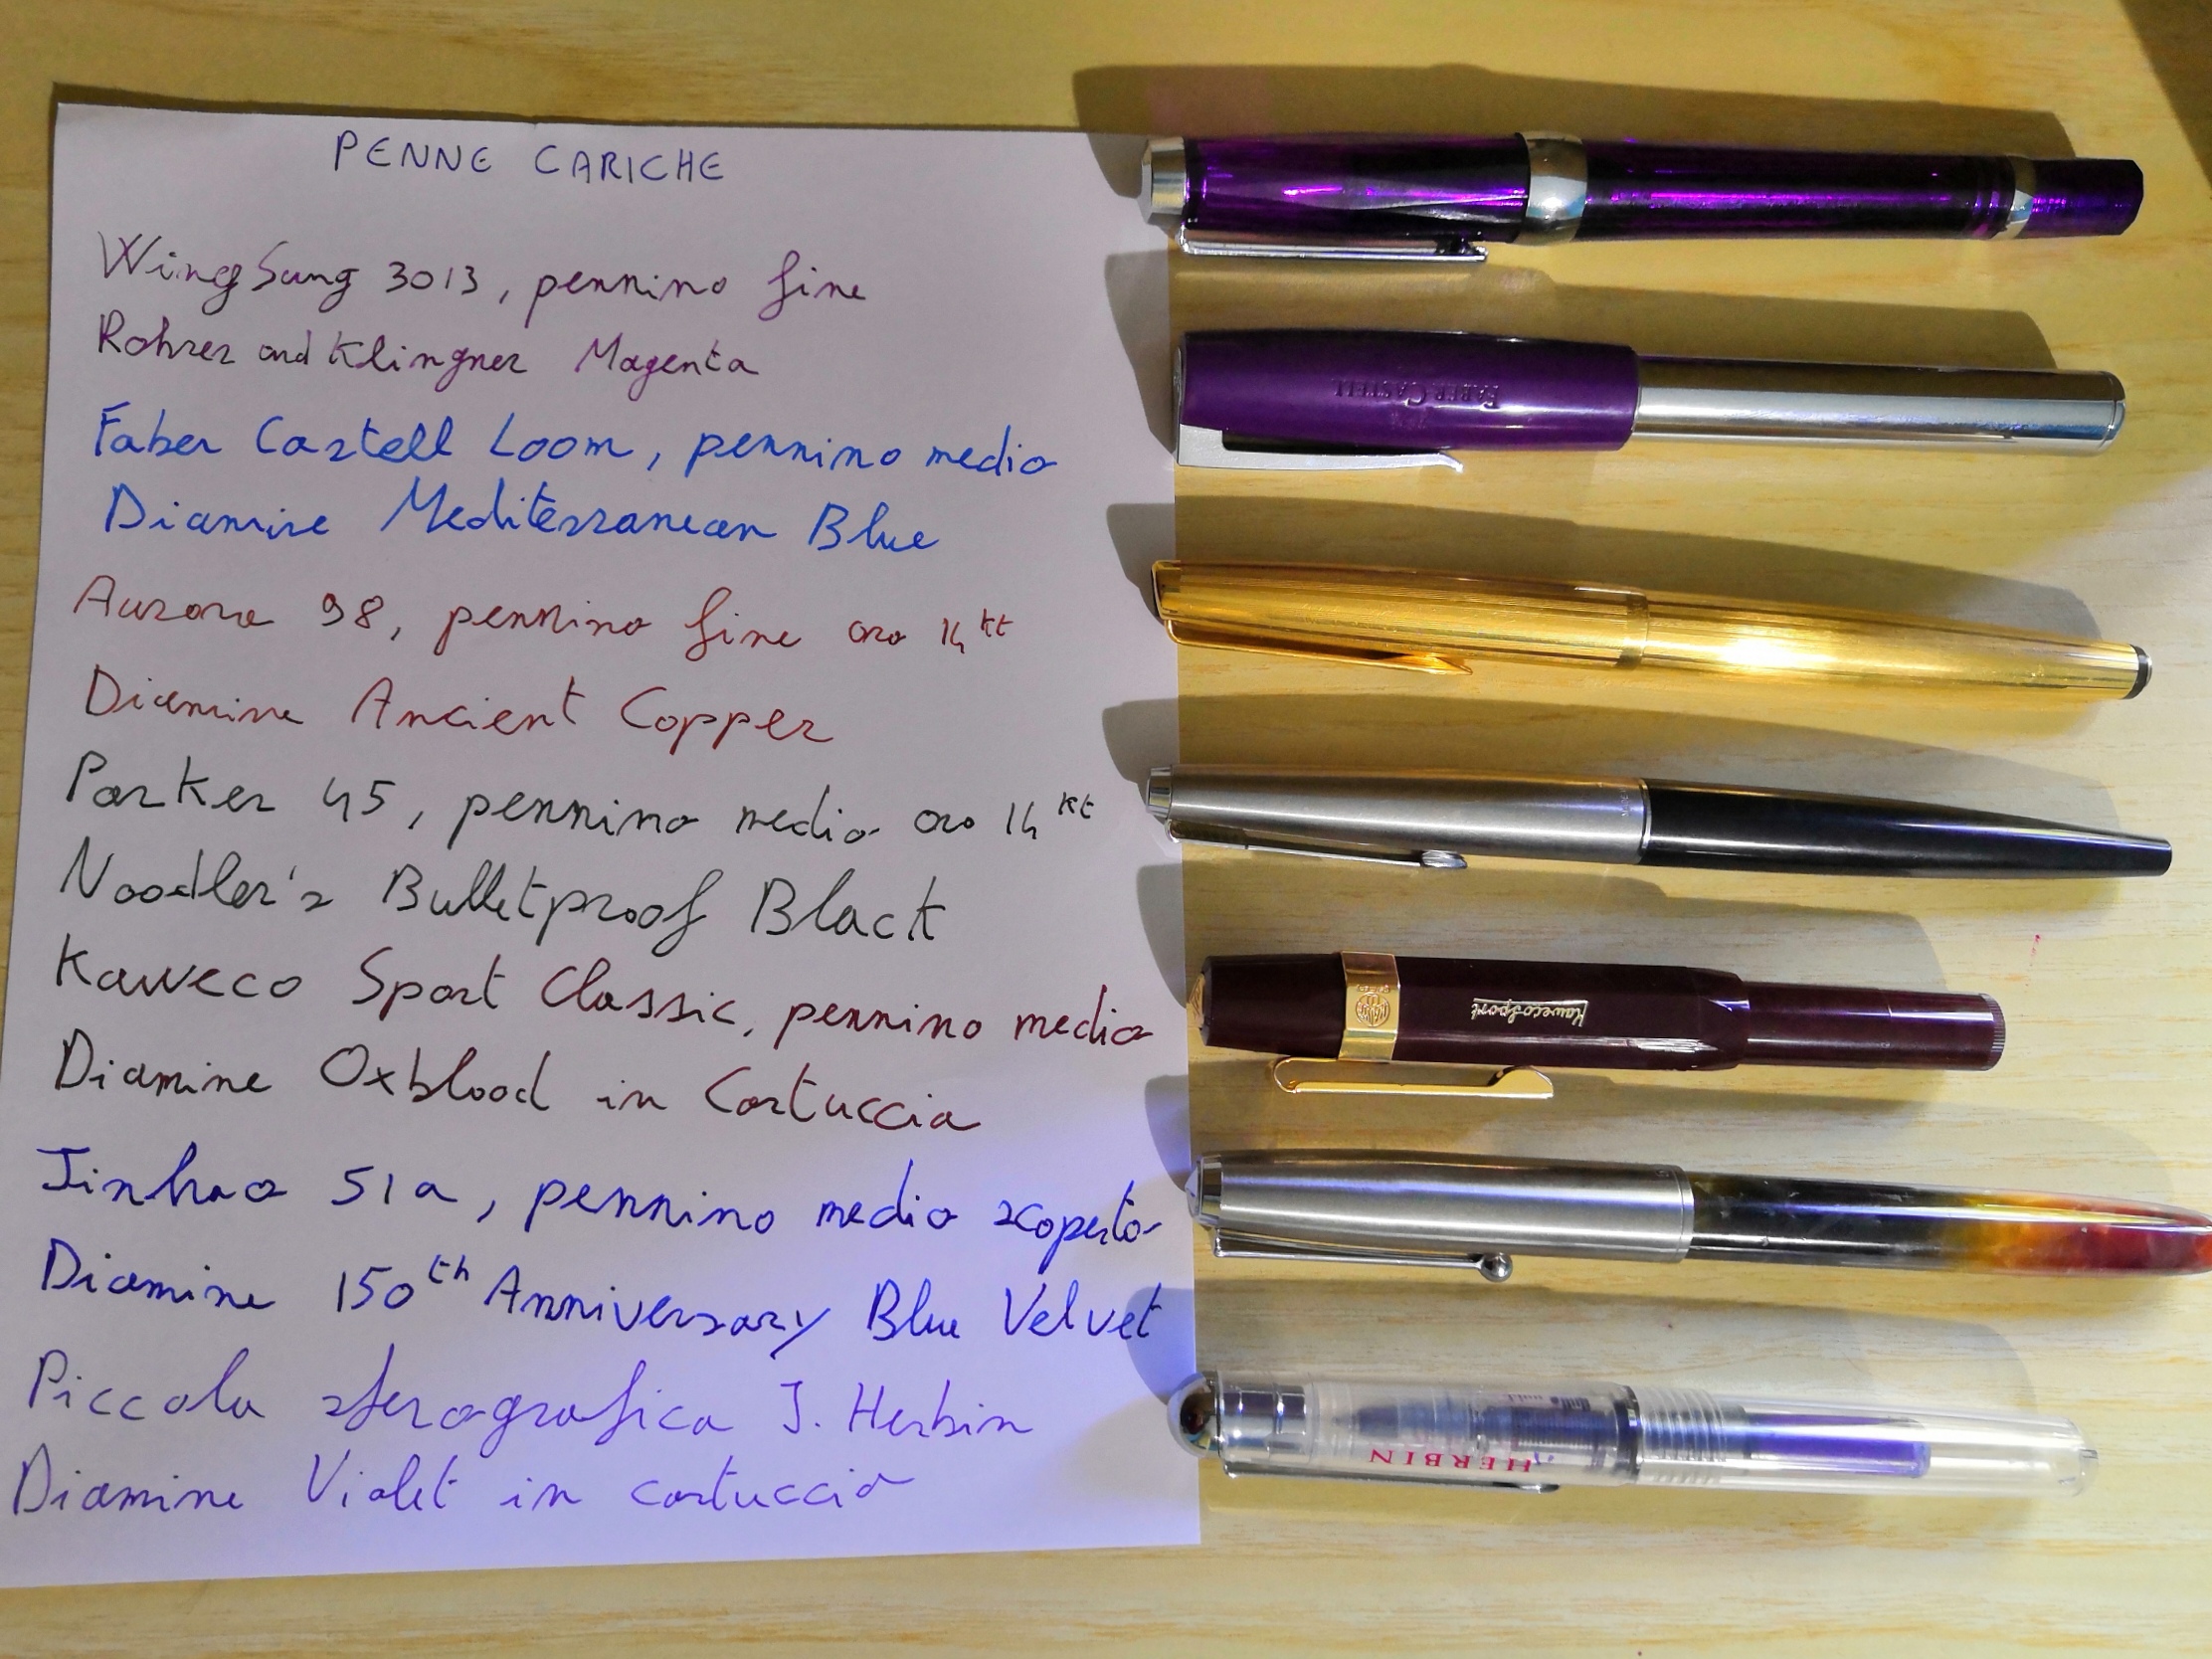 PENNE CARICHE
WingSung 3013, pennino fine
Rohrer and Klingner Magenta
Faber Castell Loom, pennino medio
Diamine Mediterranean Blue
Aurora 98, pennino fine oro 14 kt
Diamine Ancient Copper
Parker 45, pennino medio oro 14 kt
Noodler's Bulletproof Black
Kaweco Sport Classic, pennino medio
Diamine Oxblood in Cartuccia
Jinhao 51a, pennino medio scoperto
Diamine 150th Anniversary Blue Velvet
Piccola sferografica J. Herbin
Diamine Violet in cartuccia
FABER-CASTELL
KawecoSport
J. HERBIN